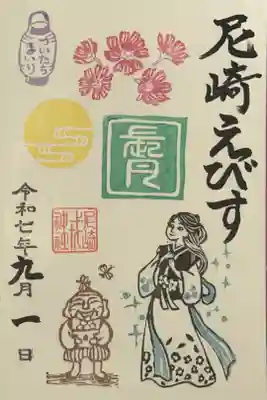 尼崎えびす
ついたち
まいり
長月
尼崎
戎
神社
令和七年九月一日